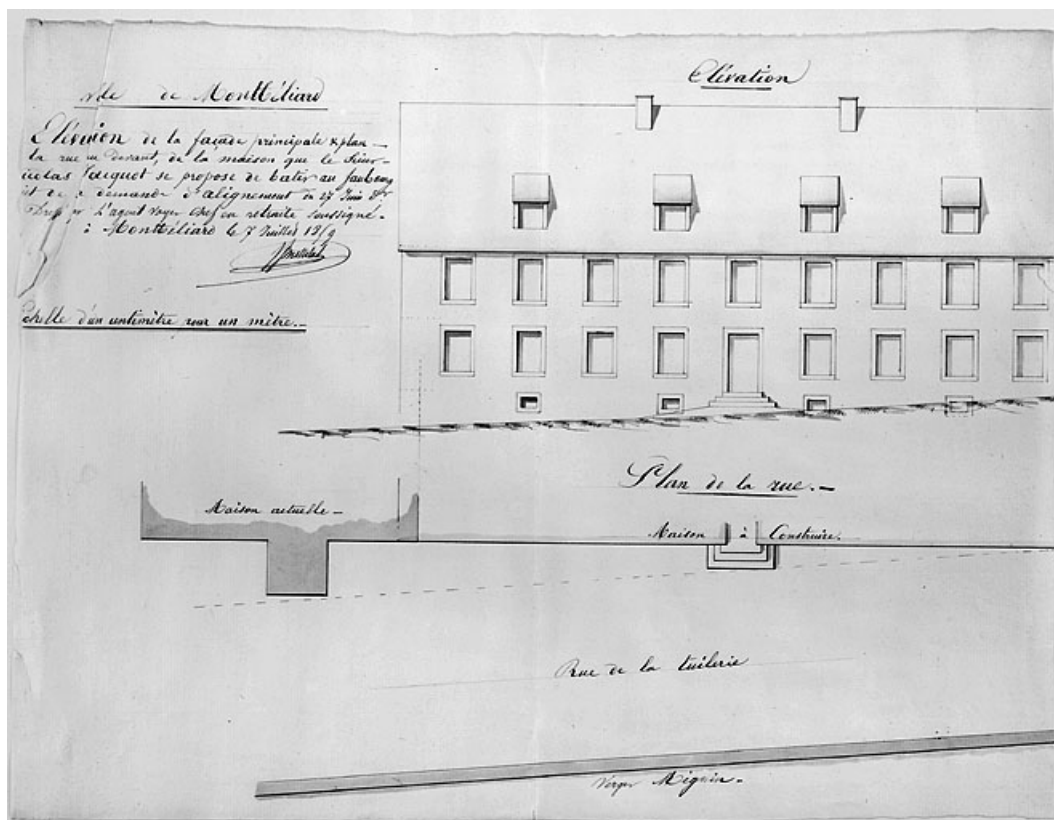 Ville de Montbéliard
Elévation de la façade principale & plan
la rue au devant, de la maison que le Sieur
Nicolas Jacquot se propose de batir au faubourg
et de sa demande d'alignement du 27 Juin
Dressé par l'agent voyer chef en retraite soussigné.
à Montbéliard le 7 Juillet
Echelle d'un centimètre pour un mètre.
Elévation
Plan de la rue.
Maison actuelle
Maison à Construire.
Rue de la tuilerie
Verger Mignin.